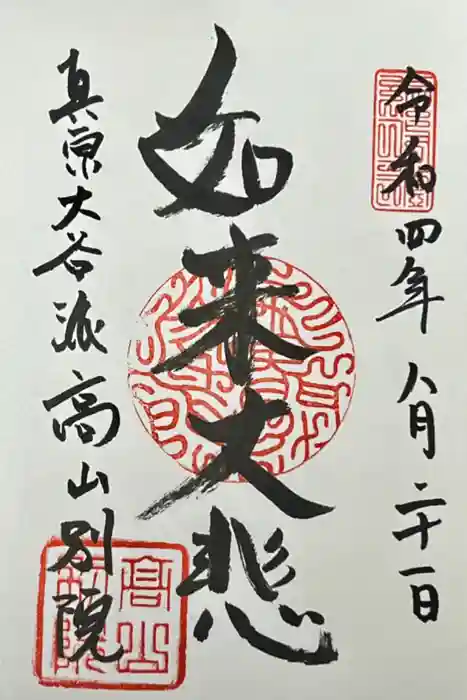 令和四年八月二十一日
如来大悲
真宗大谷派高山別院